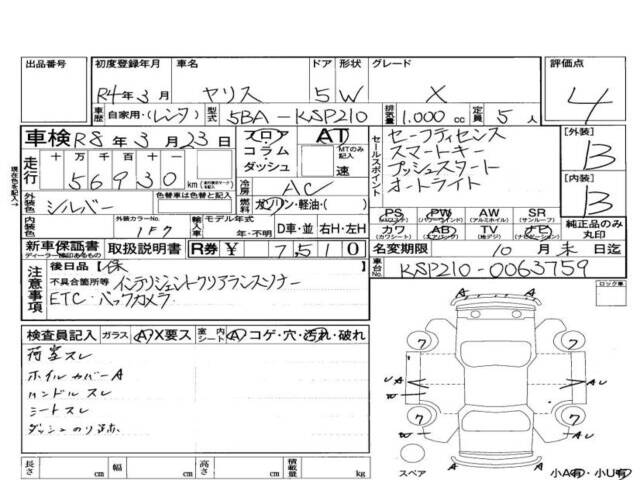 出品番号 初度登録年月 車名 ドア 形状 グレード 評価点
R4年3月 ヤリス 5 W X 4
車歴 自家用・(レンタ) 型式 5BA-KSP210 排気量 1.000 cc 定員 5 人
車検 R8年3月23日 フロア・コラム・ダッシュ AT MTのみ記入 速
セールスポイント セーフティセンス
スマートキー
プッシュスタート
オートライト
[外装] B
[内装] B
走行 十万 万 千 百 十 一
56930 km
冷房 AC
外装色 シルバー 色替車は色替と記入 燃料 ガソリン・軽油・( )
内装色 外装カラーNo. 1F7 輸入車 モデル年式 年・不明 D車・並 右H・左H
PS (パワステ) PW (パワーウインド) AW (アルミホイル) SR (サンルーフ)
カワ (カワシート) AB (エアバッグ) TV (地デジ) ナビ (ナビ)
純正品のみ丸印
新車保証書 ディーラー捺印あるもの 取扱説明書 R券 ¥ 7,510
名変期限 10月末日迄
車台No. KSP210-0063759
注意事項 後日品【保
不具合箇所等 インテリジェントクリアランスソナー
ETC・バックカメラ
ロック車
検査員記入 ガラス A・X要ス 室内シート A コゲ・穴・汚れ・破れ
荷室スレ
ホイルカバーA
ハンドルスレ
シートスレ
ダッシュのり跡
A A
7 7
UA W A U
W
7 7
スペア
長さ cm 幅 cm 高さ cm 積載量 kg
小A有・小U有
現在色を記入→